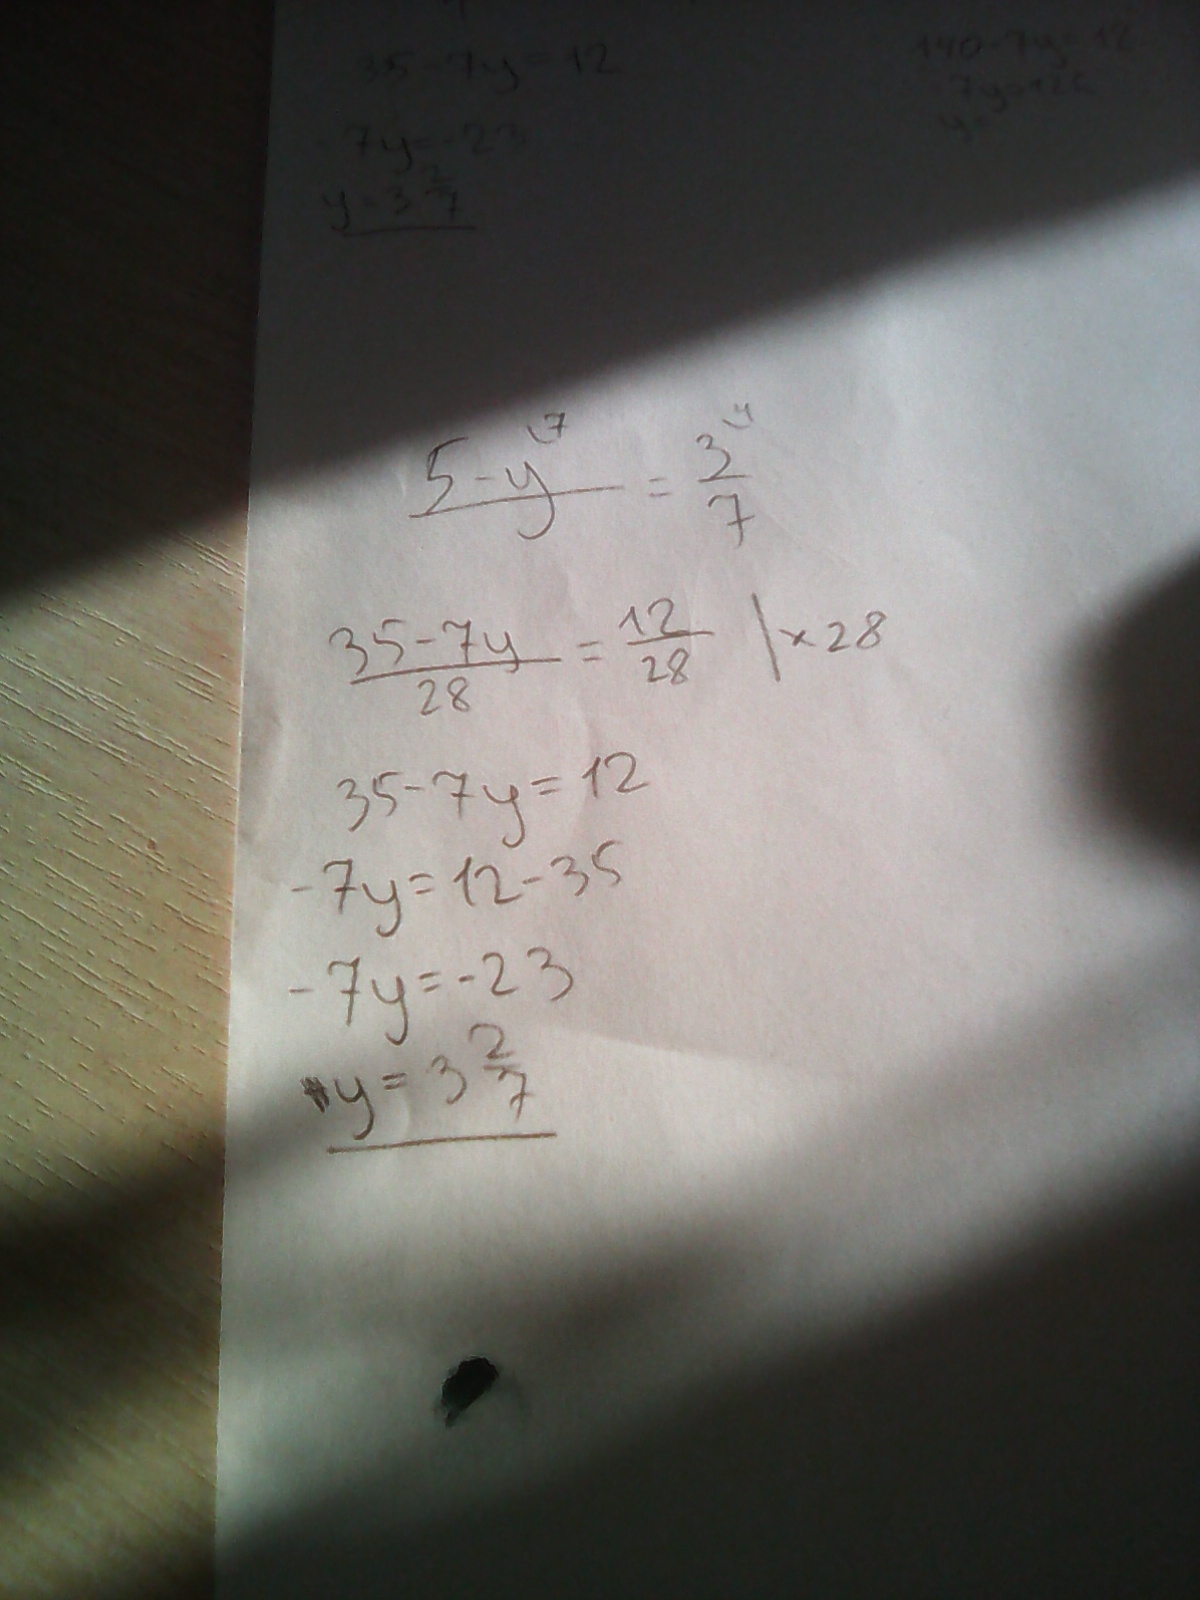 35-7y=12
-7y=-23
y=3 2/7
140-7y=12
5-y ⁷ = 3 ⁴/7
35-7y/28 = 12/28 |×28
35-7y=12
-7y=12-35
-7y=-23
y=3 2/7